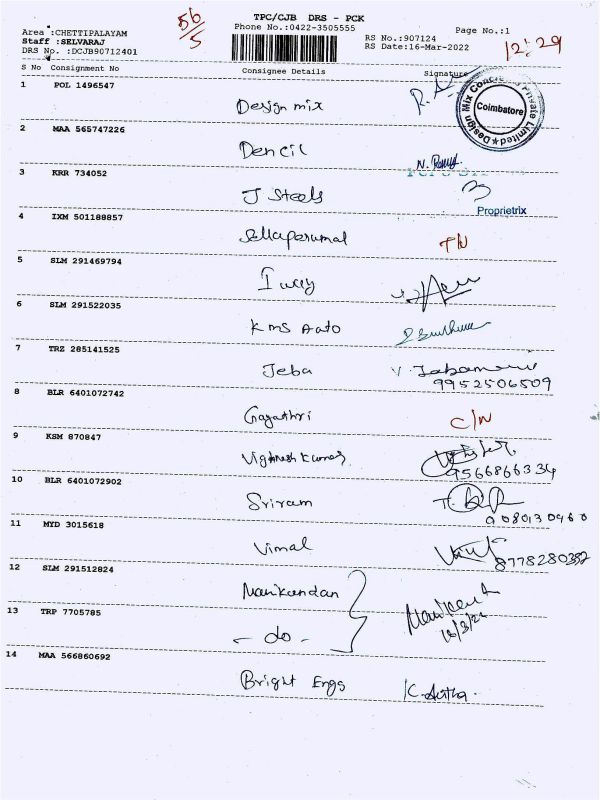 TPC/CJB DRS - PCK
56/5
Area :CHETTIPALAYAM
Phone No.:0422-3505555
Page No.:1
Staff :SELVARAJ
RS No.:907124
DRS No. :DCJB90712401
RS Date:16-Mar-2022
12:29
S No Consignment No Consignee Details Signature
1 POL 1496547 Design mix
Design Mix Private Limited
Coimbatore
2 MAA 565747226 Dencil
3 KRR 734052 J Steels
Proprietrix
4 IXM 501188857 Sellaperumal
5 SLM 291469794
6 SLM 291522035 KMS Auto
7 TRZ 285141525 Jeba
9952506509
8 BLR 6401072742 Gayathri C/N
9 KSM 870847 Vighnesh Kumar
9566866334
10 BLR 6401072902 Sriram
11 MYD 3015618 Vimal
8778280392
12 SLM 291512824 Manikandan
13 TRP 7705785 - do -
14 MAA 566860692 Bright Engs